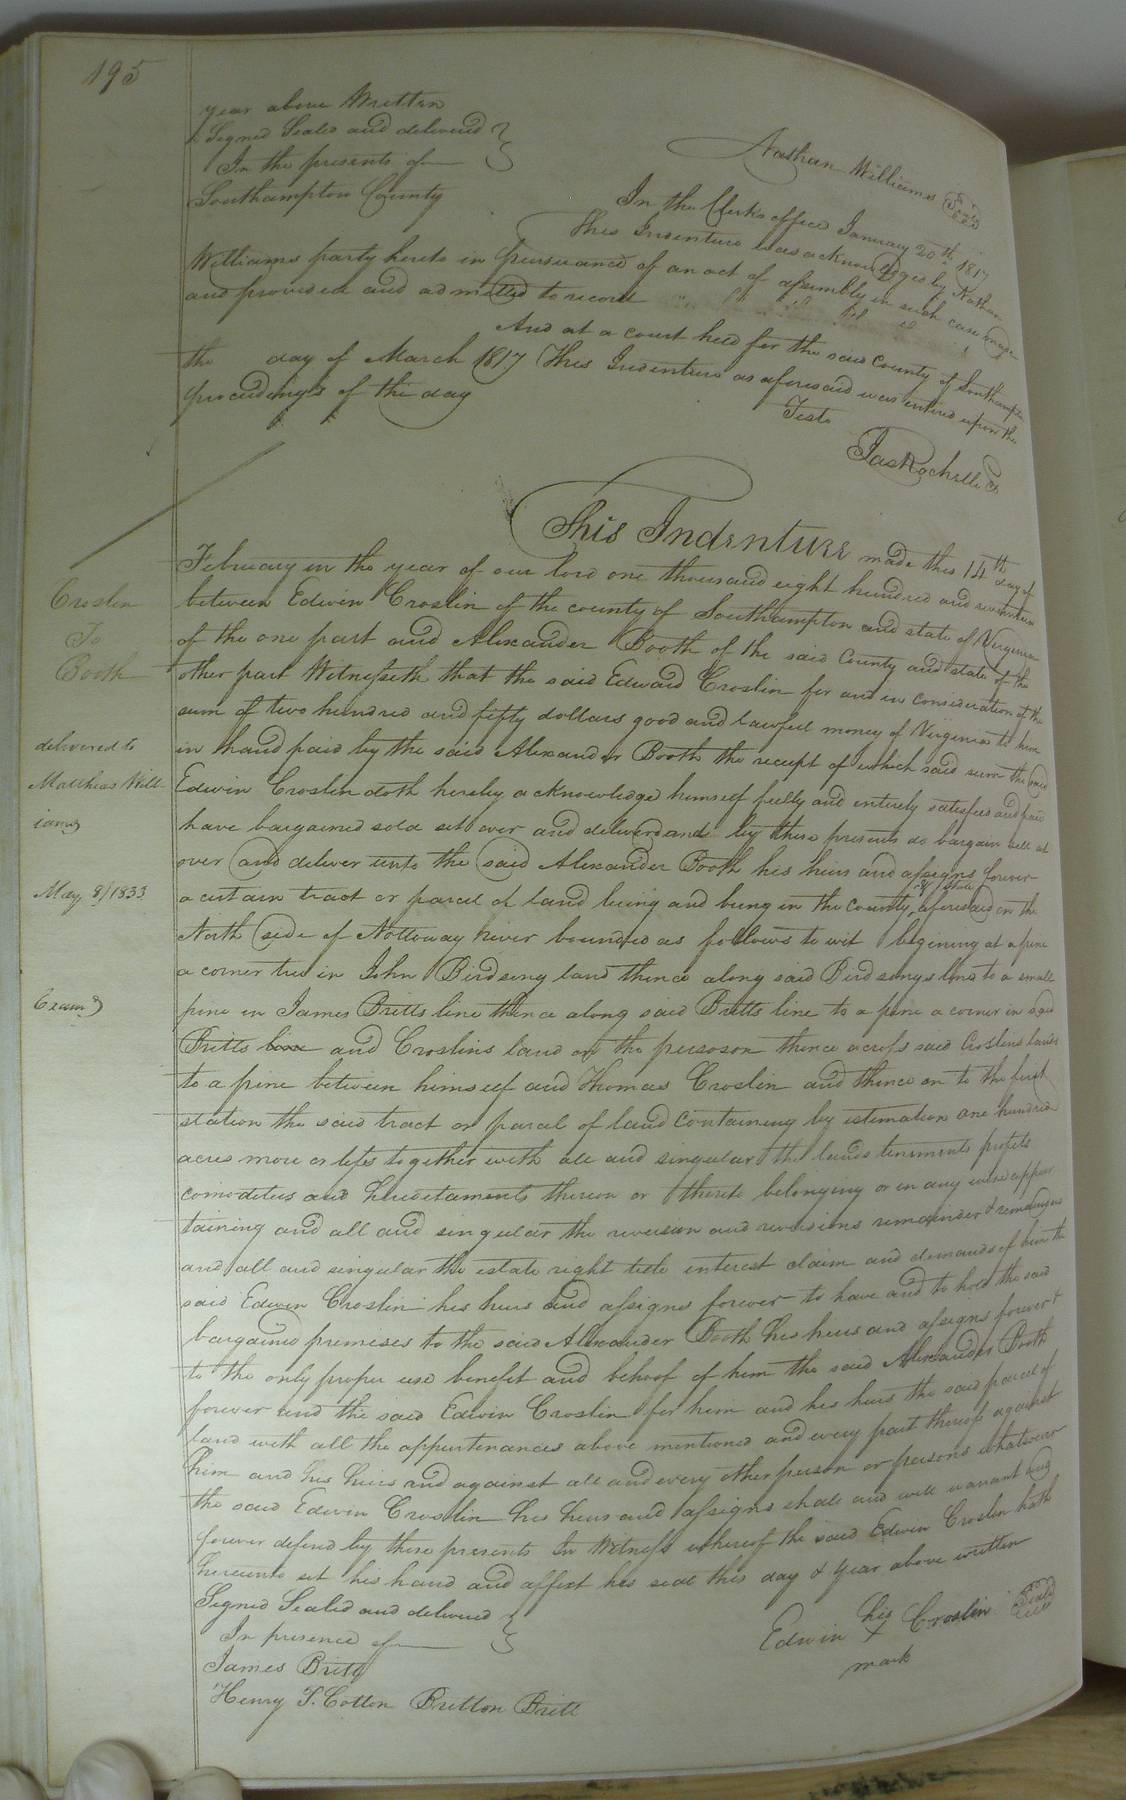 195
year above Written
Signed Sealed and delivered
In the presents of
Nathan Williams Seal
Southampton County
In the Clerks office January 20th 1817
This Indenture was acknowledged by Nathan
Williams party hereto in pursuance of an act of assembly in such case made
and provided and admitted to record
And at a court held for the said County of Southampton
the day of March 1817 This Indenture as aforesaid was entered upon the
proceedings of the day
Teste
Jas Rochelle
Croslin
To
Booth
delivered to
Matthias Will
iams
May 8/1833
Examd
This Indenture made this 14th day of
February in the year of our lord one thousand eight hundred and seventeen
between Edwin Croslin of the county of Southampton and state of Virginia
of the one part and Alexander Booth of the said County and state of the
other part Witnesseth that the said Edward Croslin for and in consideration of the
sum of two hundred and fifty dollars good and lawfull money of Virginia to him
in hand paid by the said Alexander Booth the recept of which said sum the said
Edwin Croslin doth hereby acknowledge himself fully and entirely satisfied and paid
have bargained sold set over and deliverd and by these presents do bargain sell set
over and deliver unto the said Alexander Booth his heirs and assigns forever
a certain tract or parcel of land lieing and being in the County & State aforesaid on the
North side of Nottoway River bounded as follows to wit begining at a pine
a corner tree in John Birdsong land thence along said Birdsongs line to a small
pine in James Britts line thence along said Britts line to a pine a corner in said
Britts line and Croslins land on the persoson thence across said Croslins land
to a pine between himself and Thomas Croslin and thence on to the first
station the said tract or parcel of land containing by estimation one hundred
acres more or less together with all and singular the lands tenements profits
comodities and heredetaments thereon or thereto belonging or in any wise apper
taining and all and singular the reversion and reversions remainder & remainders
and all and singular the estate right title interest claim and demands of him the
said Edwin Croslin his heirs and assigns forever to have and to hold the said
bargained premises to the said Alexander Booth his heirs and assigns forever &
to the only proper use benefit and behoof of him the said Alexander Booth
forever and the said Edwin Croslin for him and his heirs the said parcel of
land with all the appurtenances above mentioned and every part thereof against
him and his heirs and against all and every other person or persons whatsoever
the said Edwin Croslin his heirs and assigns shall and will warrant and
forever defend by these presents In Witness whereof the said Edwin Croslin hath
hereunto set his hand and affixt his seal this day & year above written
Signed Sealed and delivered
In presence of
Edwin his X mark Croslin Seal
James Britt
Henry T. Cotton Britton Britt